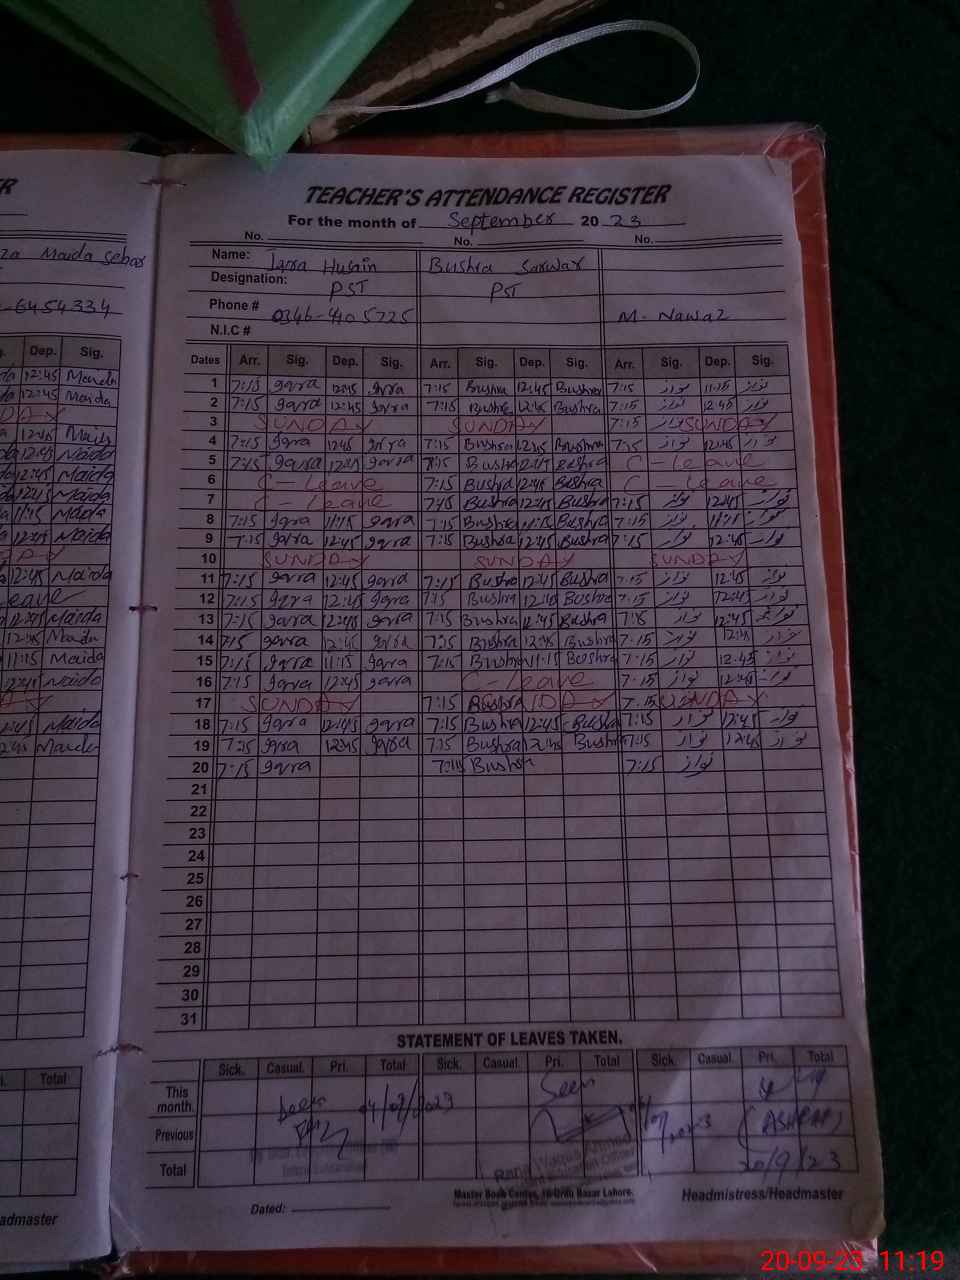 TEACHER'S ATTENDANCE REGISTER
For the month of September 20 23
No. No. No.
Maida
Name: Iqra Husain Bushra Sarwar
Designation: PST PST
-6454334
Phone # 0346- M. Nawaz
N.I.C #
Dep. Sig. Dates Arr. Sig. Dep. Sig. Arr. Sig. Dep. Sig. Arr. Sig. Dep. Sig.
12:45 Maida 1 7:15 Iqra 12:45 Iqra 7:15 Bushra 12:45 Bushra 7:15 نواز 11:15 نواز
12:45 Maida 2 7:15 Iqra 12:45 Iqra 7:15 Bushra 12:45 Bushra 7:15 نواز 12:45 نواز
3 SUNDAY SUNDAY 7:15 نواز SUNDAY
12:45 Maida 4 7:15 Iqra 12:45 Iqra 7:15 Bushra 12:45 Bushra 7:15 نواز 12:45 نواز
12:45 Maida 5 7:15 Iqra 12:45 Iqra 7:15 Bushra 12:45 Bushra C-Leave
12:45 Maida 6 C-Leave 7:15 Bushra 12:45 Bushra C-Leave
12:45 Maida 7 C-Leave 7:15 Bushra 12:45 Bushra 7:15 نواز 12:45 نواز
11:15 Maida 8 7:15 Iqra 11:15 Iqra 7:15 Bushra 11:15 Bushra 7:15 نواز 11:15 نواز
12:45 Maida 9 7:15 Iqra 12:45 Iqra 7:15 Bushra 12:45 Bushra 7:15 نواز 12:45 نواز
10 SUNDAY SUNDAY SUNDAY
12:45 Maida 11 7:15 Iqra 12:45 Iqra 7:15 Bushra 12:45 Bushra 7:15 نواز 12:45 نواز
Leave 12 7:15 Iqra 12:45 Iqra 7:15 Bushra 12:45 Bushra 7:15 نواز 12:45 نواز
12:45 Maida 13 7:15 Iqra 12:45 Iqra 7:15 Bushra 12:45 Bushra 7:15 نواز 12:45 نواز
12:45 Maida 14 7:15 Iqra 12:45 Iqra 7:15 Bushra 12:45 Bushra 7:15 نواز 12:45 نواز
11:15 Maida 15 7:15 Iqra 11:15 Iqra 7:15 Bushra 11:15 Bushra 7:15 نواز 12:45 نواز
12:45 Maida 16 7:15 Iqra 12:45 Iqra C-Leave 7:15 نواز 12:45 نواز
17 SUNDAY 7:15 Bushra 7:15 SUNDAY
12:45 Maida 18 7:15 Iqra 12:45 Iqra 7:15 Bushra 12:45 Bushra 7:15 نواز 12:45 نواز
12:45 Maida 19 7:15 Iqra 12:45 Iqra 7:15 Bushra 12:45 Bushra 7:15 نواز 12:45 نواز
20 7:15 Iqra 7:15 Bushra 7:15 نواز
21
22
23
24
25
26
27
28
29
30
31
STATEMENT OF LEAVES TAKEN.
Total Sick. Casual. Pri. Total Sick. Casual Pri. Total Sick. Casual. Pri. Total
This month. Seen Seen
Previous (ASHRAF)
Total 20/9/23
Rana Waqas Ahmed
Master Book Centre, 16-Urdu Bazar Lahore.
Headmistress/Headmaster
Dated:
admaster
20-09-23 11:19